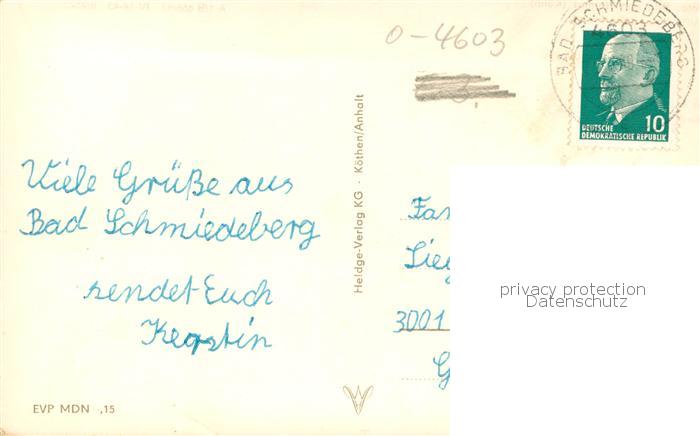 0-4603
BAD SCHMIEDEBERG
4603
10
DEUTSCHE
DEMOKRATISCHE REPUBLIK
Viele Grüße aus
Bad Schmiedeberg
sendet Euch
Kerstin
Heldge-Verlag KG · Köthen/Anhalt
3001
privacy protection
Datenschutz
EVP MDN ,15